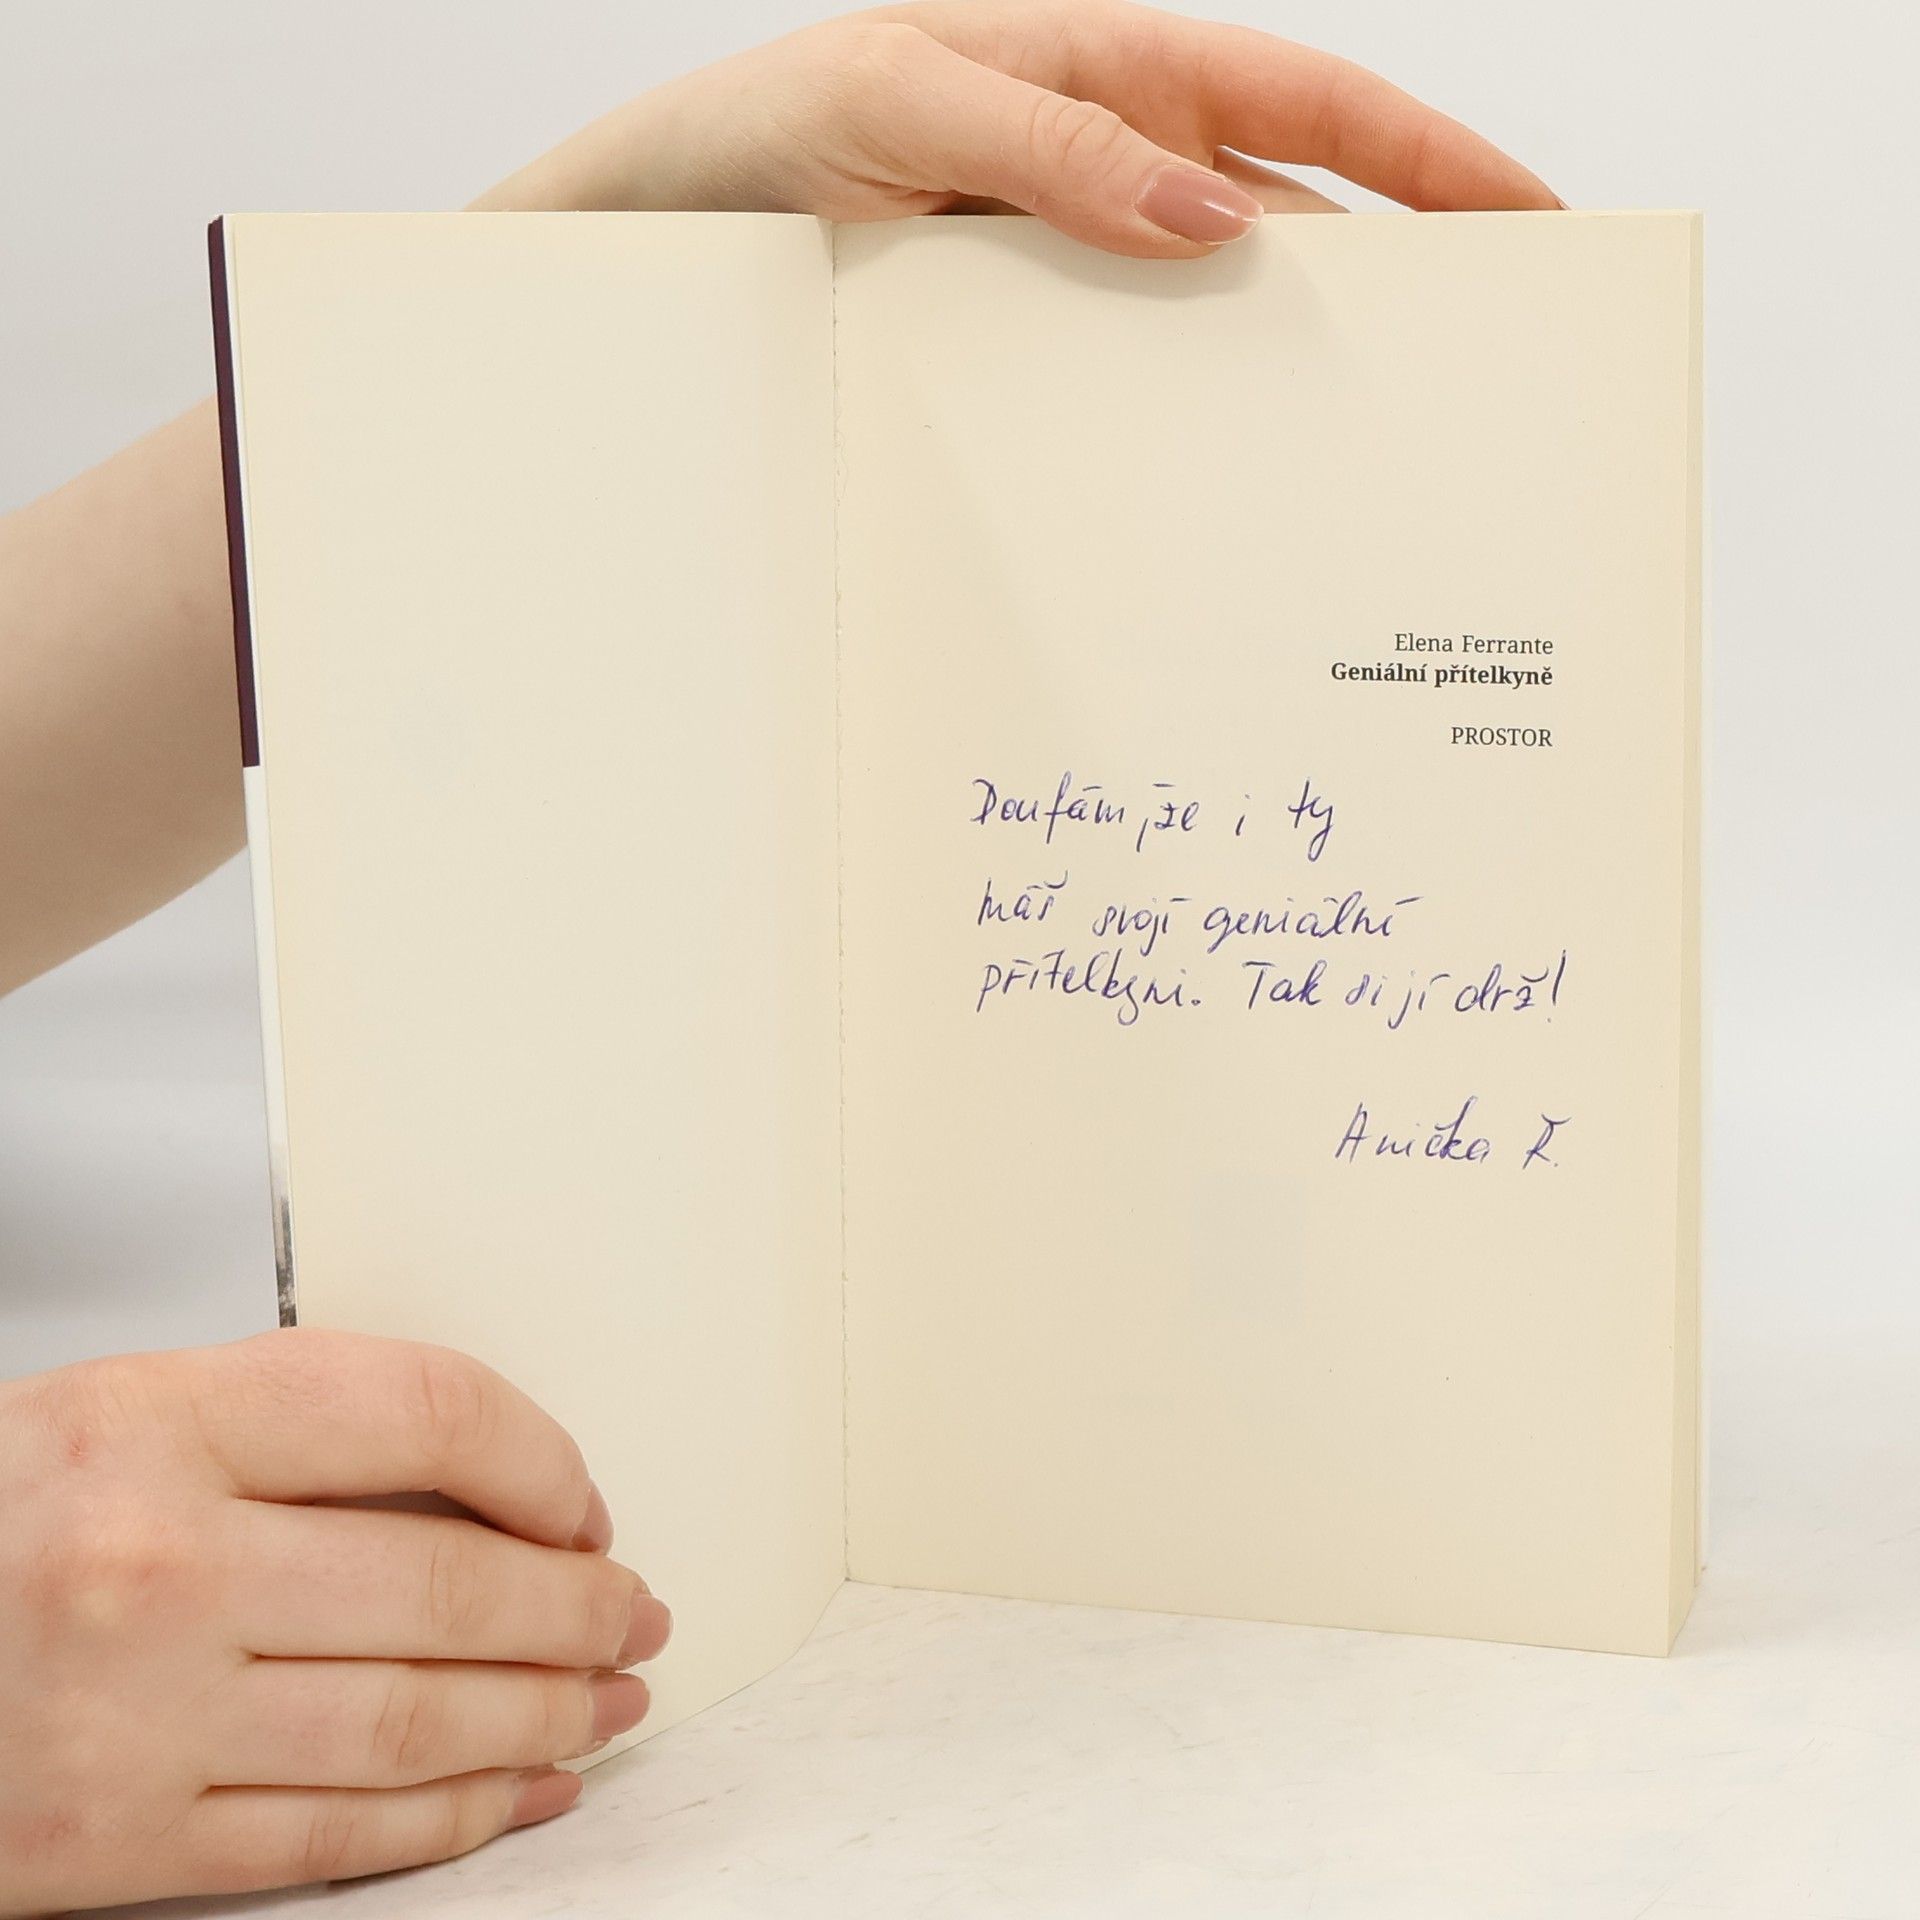 Elena Ferrante
Geniální přítelkyně
PROSTOR
Doufám, že i ty
máš svojí geniální
přítelkyni. Tak si jí drž!
Anička Ř.